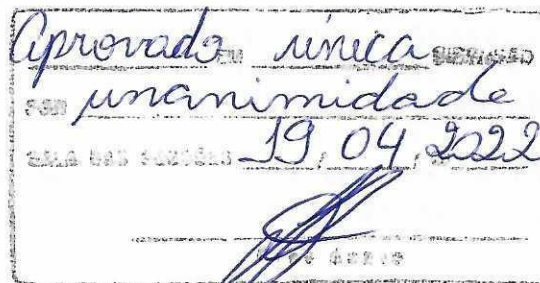 Aprovado EM única DISCUSSÃO
POR unanimidade
SALA DAS SESSÕES 19, 04, 2022